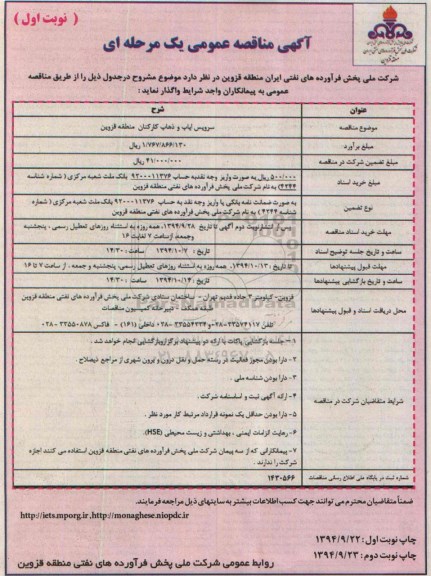 ( نوبت اول )
آگهی مناقصه عمومی یک مرحله ای
شرکت ملی پخش فرآورده های نفتی ایران منطقه قزوین در نظر دارد موضوع مشروح درجدول ذیل را از طریق مناقصه
عمومی به پیمانکاران واجد شرایط واگذار نماید :
عنوان
شرح
موضوع مناقصه
سرویس ایاب و ذهاب کارکنان منطقه قزوین
مبلغ برآورد
۱/۷۶۷/۸۶۶/۱۳۰ ریال
مبلغ تضمین شرکت در مناقصه
۴۱/۰۰۰/۰۰۰ ریال
مبلغ خرید اسناد
۵۰۰/۰۰۰ ریال به صورت واریز وجه نقدبه حساب ۹۲۰۰۰۱۱۳۷۶ بانک ملت شعبه مرکزی ( شماره شناسه
۴۲۴۴) به نام شرکت ملی پخش فرآورده های نفتی منطقه قزوین
نوع تضمین
به صورت ضمانت نامه بانکی یا واریز وجه نقد به حساب ۹۲۰۰۰۱۱۳۷۶ بانک ملت شعبه مرکزی ( شماره
شناسه ۴۲۴۴ ) به نام شرکت ملی پخش فرآورده های نفتی منطقه قزوین
مهلت خرید اسناد مناقصه
پس از انتشارنوبت دوم آگهی تا تاریخ ۱۳۹۴/۹/۲۸، همه روزه به استثناء روزهای تعطیل رسمی ، پنجشنبه
وجمعه، ازساعت ۷ لغایت ۱۶
ساعت و تاریخ جلسه توضیح اسناد
تاریخ : ۱۳۹۴/۱۰/۷ ساعت : ۱۴:۳۰
مهلت قبول پیشنهادها
تا تاریخ ۱۳۹۴/۱۰/۱۳، همه روزه به استثناء روزهای تعطیل رسمی، پنجشنبه و جمعه ، از ساعت ۷ تا ۱۶
ساعت و تاریخ بازگشایی پیشنهادها
تاریخ : ۱۳۹۴/۱۰/۱۴ ساعت : ۱۴:۳۰
محل دریافت اسناد و قبول پیشنهادها
قزوین- کیلومتر ۳ جاده قدیم تهران - ساختمان ستادی شرکت ملی پخش فرآورده های نفتی منطقه قزوین
طبقه همکف - دبیرخانه کمیسیون مناقصات
شرایط متقاضیان شرکت در مناقصه
۱- جلسه بازگشایی پاکات با ارائه دو پیشنهاد برگزار وبازگشایی انجام خواهد شد .
۲- دارا بودن مجوز فعالیت در رسته حمل و نقل درون و برون شهری از مراجع ذیصلاح .
۳- دارا بودن شناسه ملی .
۴- ارائه آگهی ثبت و اساسنامه شرکت .
۵- دارا بودن حداقل یک نمونه قرارداد مرتبط کار مورد نظر .
۶- رعایت الزامات ایمنی ، بهداشتی و زیست محیطی (HSE).
۷- پیمانکارانی که از سه پیمان شرکت ملی پخش فرآورده های نفتی منطقه قزوین استفاده می کنند اجازه
شرکت را ندارند .
شماره ثبت در پایگاه ملی اطلاع رسانی مناقصات
۱۴۳۰۵۶۶
ضمناً متقاضیان محترم می توانند جهت کسب اطلاعات بیشتر به سایتهای ذیل مراجعه فرمایند.
http://iets.mporg.ir,http://monaghese.niopdc.ir
چاپ نوبت اول : ۱۳۹۴/۹/۲۲
چاپ نوبت دوم : ۱۳۹۴/۹/۲۳
روابط عمومی شرکت ملی پخش فرآورده های نفتی منطقه قزوین